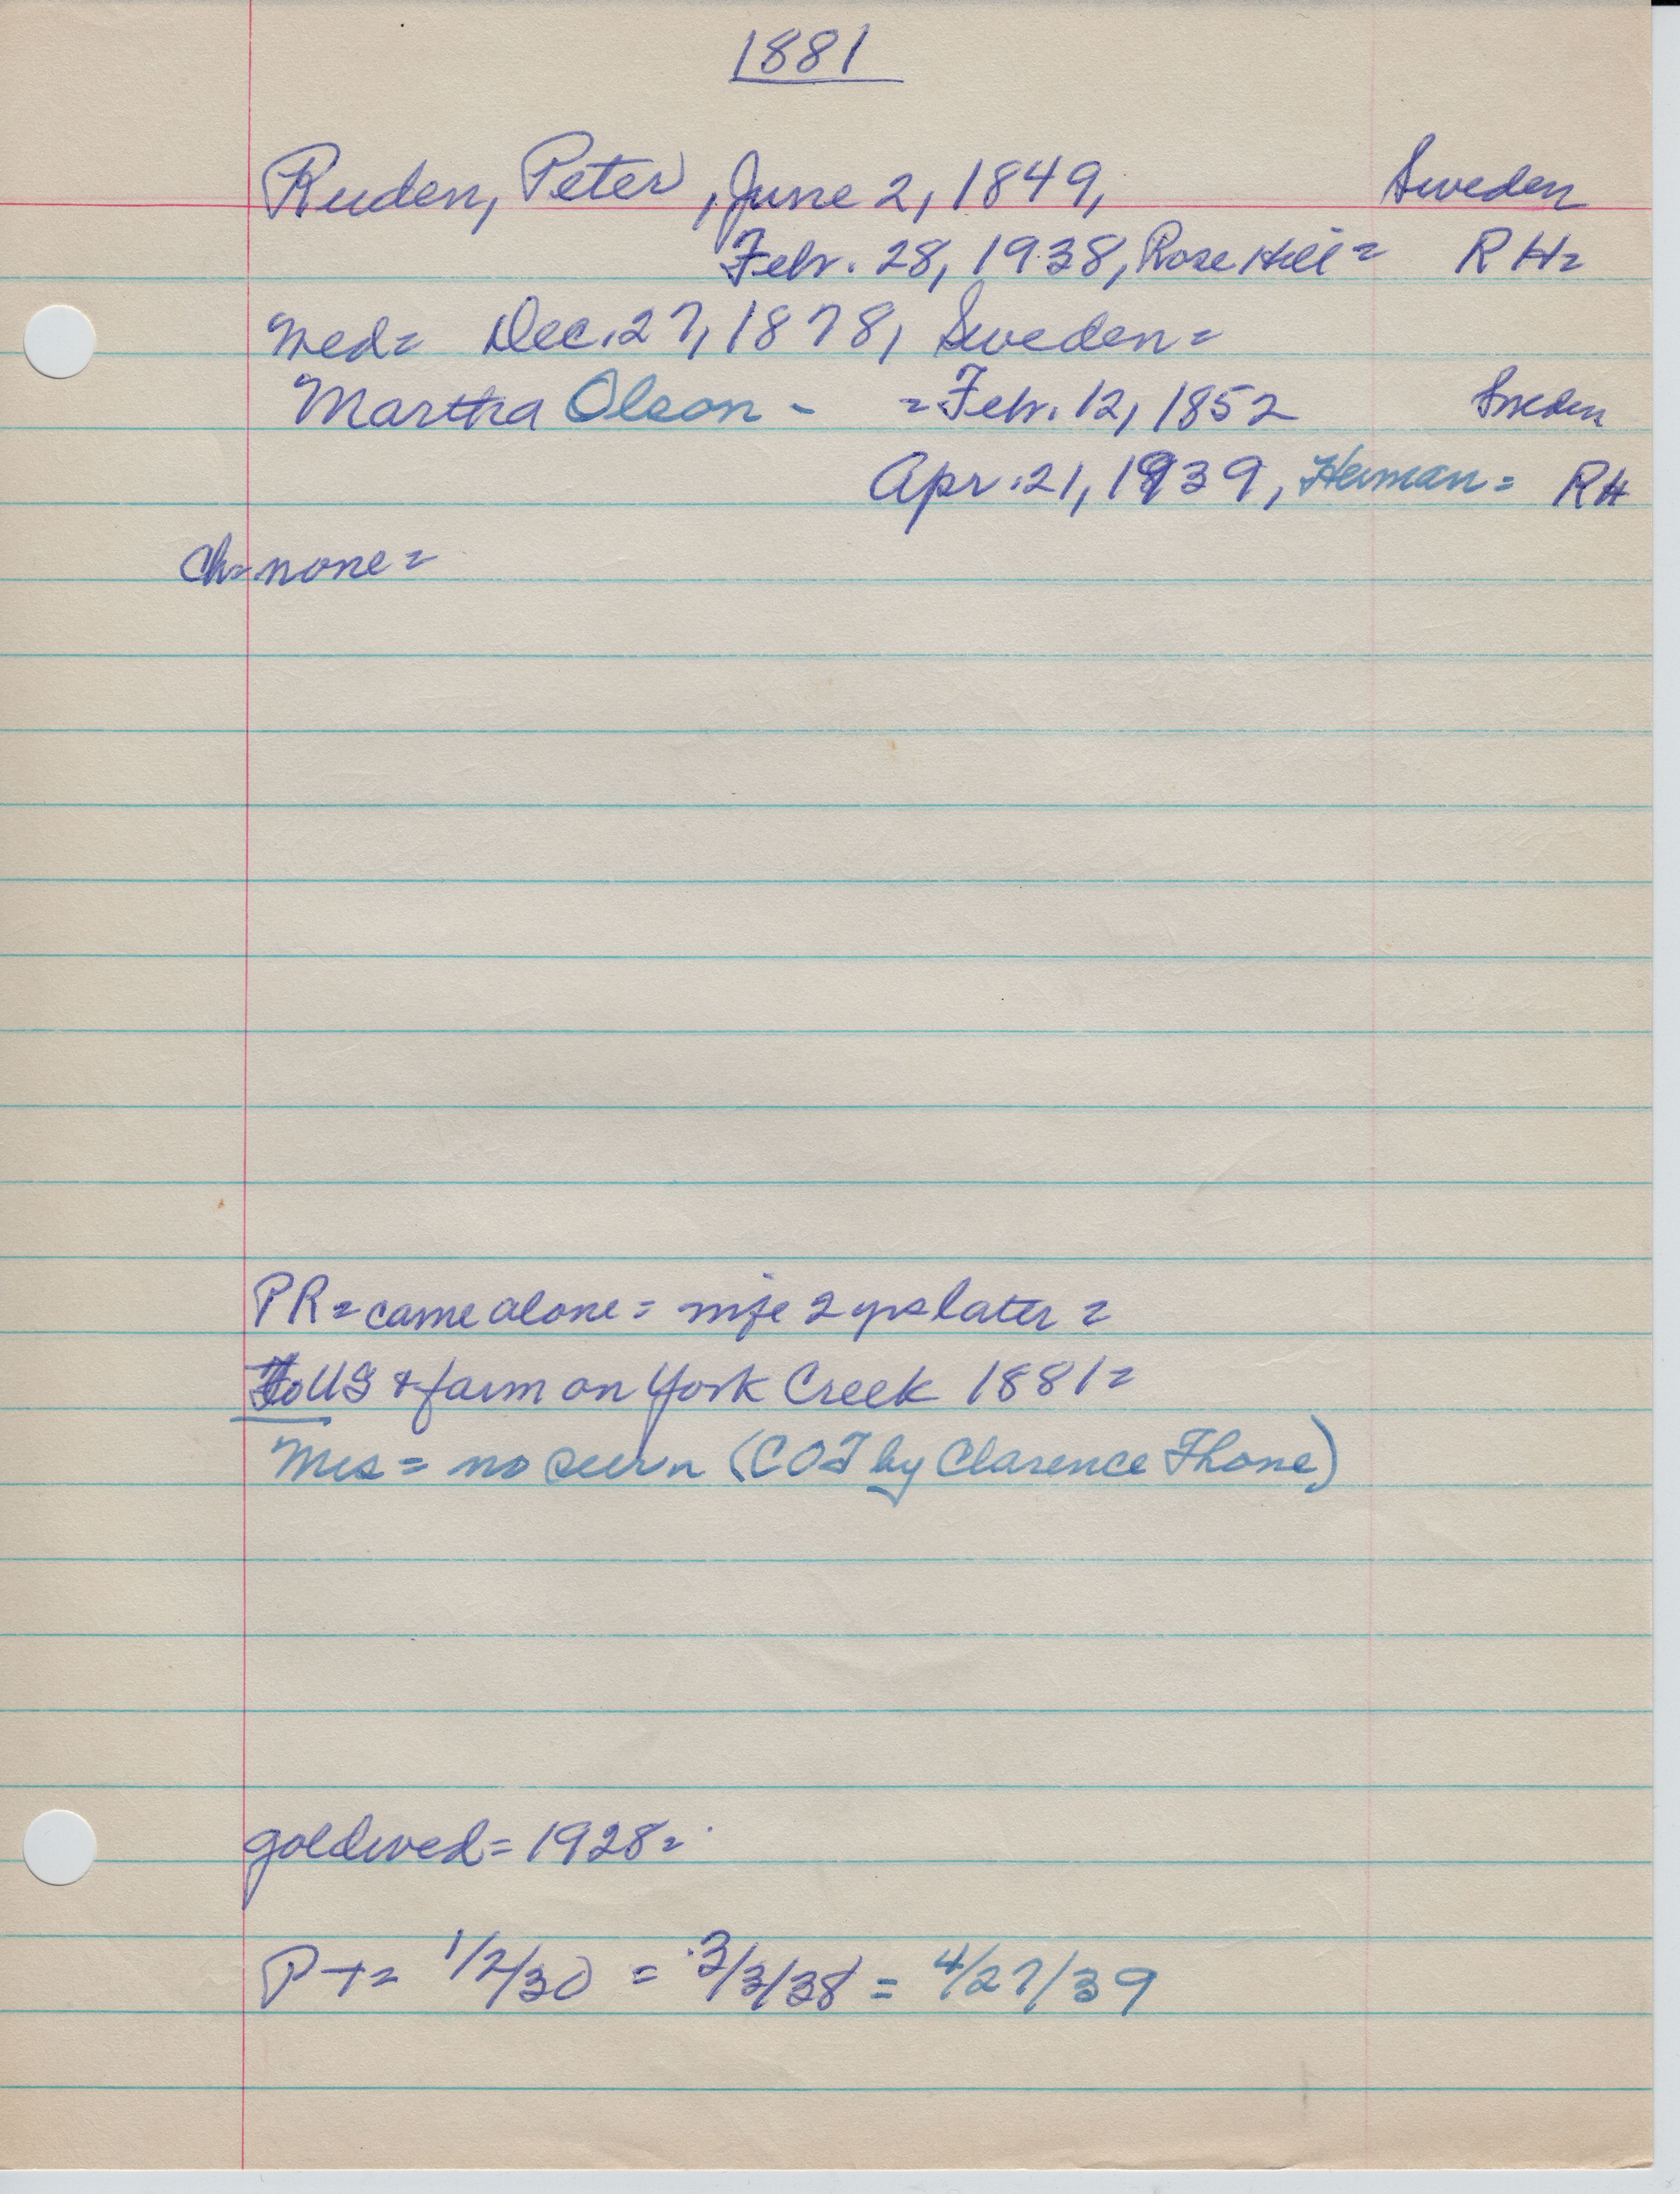 1881
Ruden, Peter, June 2, 1849, Sweden
Febr. 28, 1938, Rose Hill = RH=
wed= Dec. 27, 1878, Sweden=
Martha Olson - = Febr. 12, 1852 Sweden
Apr. 21, 1939, Heiman= RH
Ch= none=
PR= came alone= wife 2 yrs later=
To US & farm on York Creek 1881=
Mrs= no (COT by Clarence Thone)
goldwed= 1928=
PT= 1/2/30 = 3/3/38 = 4/27/39